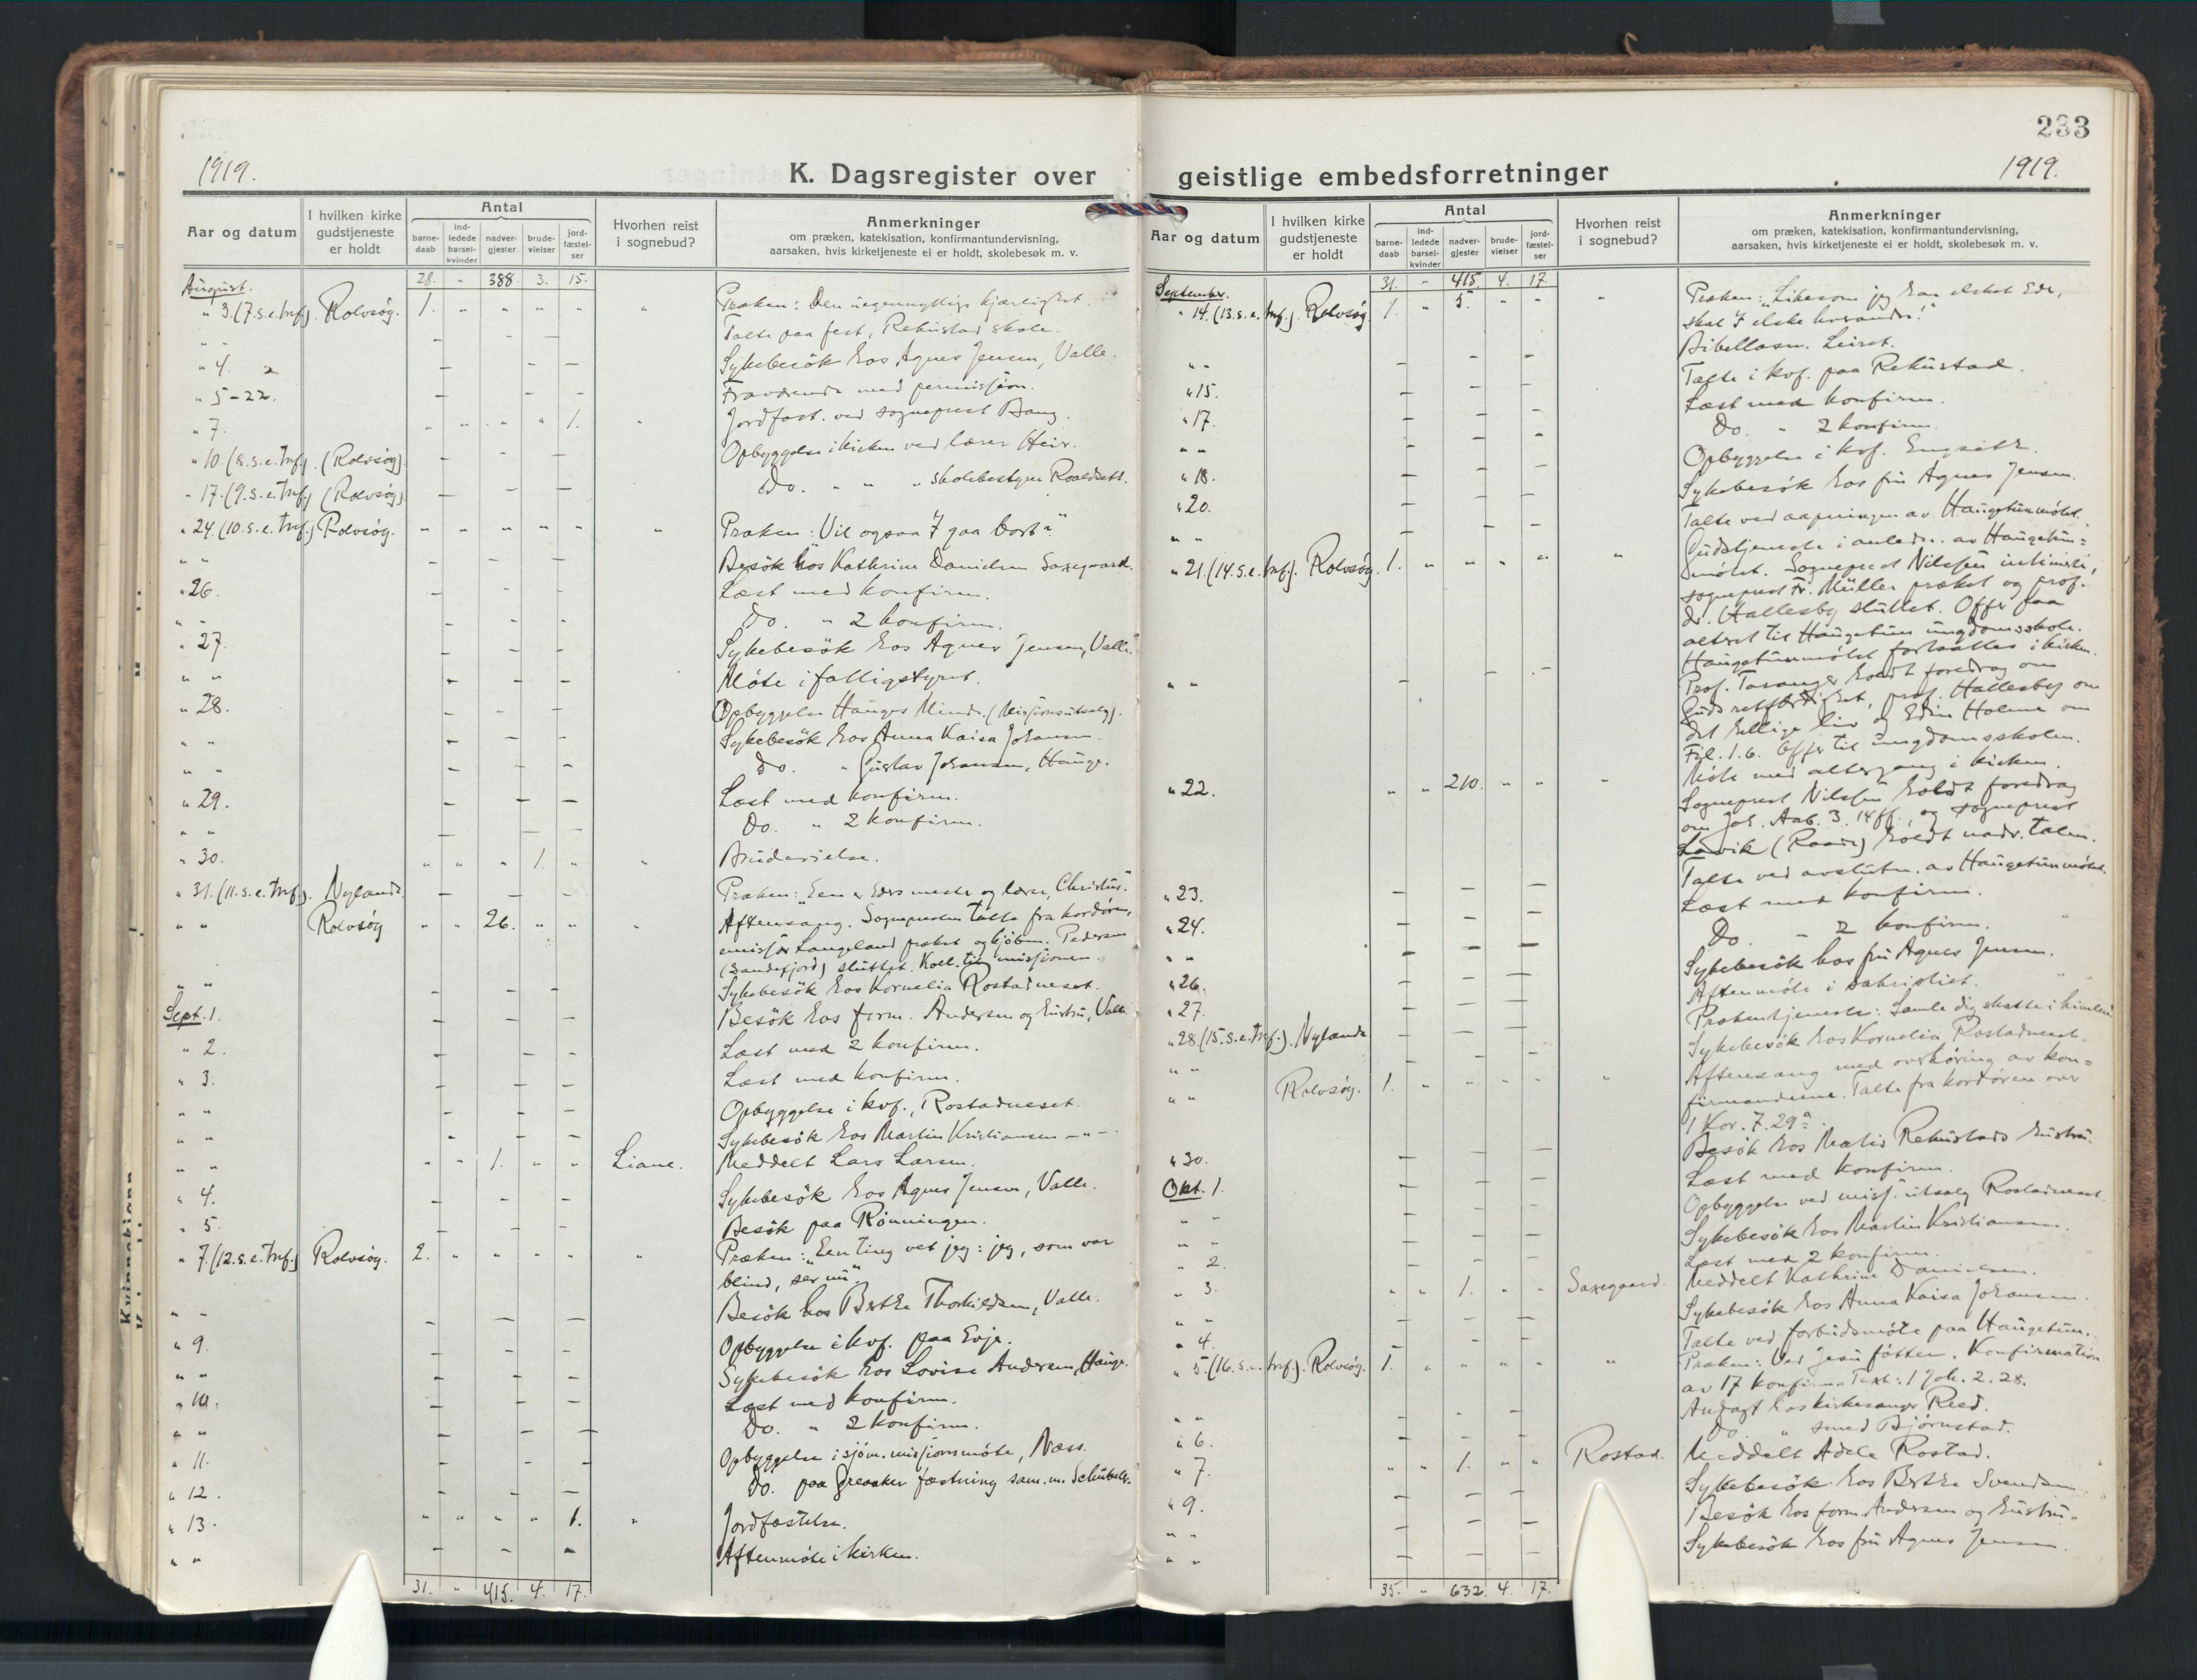 233
1919.
K. Dagsregister over geistlige embedsforretninger
1919.
Aar og datum
I hvilken kirke gudstjeneste er holdt
Antal
barne-daab
ind-ledede barsel-kvinder
nadver-gjester
brude-vielser
jord-fæstel-ser
Hvorhen reist i sognebud?
Anmerkninger
om præken, katekisation, konfirmantundervisning,
aarsaken, hvis kirketjeneste ei er holdt, skolebesøk m. v.
28. " 388 3. 15.
August.
" 3. (7.s.e.Trf.). Rolvsøy. 1. " " " " " Præken: Den uegennyttige kjærlighet.
" " Talte paa fest, Rekustad skole.
" 4. Sykebesök hos Agnes Jensen, Valle.
" 5-22. Fraværende med permission.
" 7. " " " " 1. " Jordfæst. ved sogneprest Bang.
" 10. (8.s.e.Trf.). (Rolvsøy). Opbyggelse i kirken ved lærer Heir.
" 17. (9.s.e.Trf.) (Rolvsøy) Do. " " " skolebestyrer Roaldset.
" 24. (10.s.e.Trf.) Rolvsøy. " " " " " " Præken: Vil ogsaa I gaa bort?
" " Besök hos Kathrine Danielsen Saxegaard.
" 26. Læst med konfirm.
" " Do. " 2 konfirm.
" 27. Sykebesök hos Agnes Jensen, Valle.
" " Möte i fattigstyret.
" 28. Opbyggelse Hauges Minde (Misjonsutsalg).
" " Sykebesök hos Anna Kaisa Johansen.
" " Do. " Gustav Johansen, Hauge.
" 29. Læst med konfirm.
" " Do. " 2 konfirm.
" 30. " " " 1. " " Brudevielse.
" 31. (11.s.e.Trf.). Nylande Præken: "Een er Eders mester og lærer, Christus."
" " Rolvsøy " " 26. " " " Aftensang. Sognepresten talte fra kordören,
misjær Langeland prækte og kjöbm. Pedersen
(Sandefjord) sluttet. Koll. til misjonen.
" " Sykebesök hos Kornelia Rostadneset.
Sept. 1. Besök hos form. Andersen og hustru, Valle
" 2. Læst med 2 konfirm.
" 3. Læst med konfirm.
" " Opbyggelse i kvf., Rostadneset.
" " Sykebesök hos Martin Kristiansen – " –
" " " " 1. " " Liane. Meddelt Lars Larsen.
" 4. Sykebesök hos Agnes Jensen, Valle.
" 5. Besök paa Rönningen.
" 7. (12.s.e.Trf.) Rolvsøy. 2. " " " " " Præken: "Een ting vet jeg: jeg, som var
blind, ser nu."
" " Besök hos Berthe Thorkildsen, Valle.
" 9. Opbyggelse i kvf. paa Evje.
" " Sykebesök hos Lovise Andersen, Hauge.
" 10. Læst med konfirm.
" " Do. " 2 konfirm.
" 11. Opbyggelse i sjöm.misjonsmöte, Næss.
" 12. Do. paa Greaaker fæstning sam. m.
" 13. " " " " 1. " Jordfæstelse.
" " Aftenmöte i kirken.
31. " 415. 4. 17.
Aar og datum
I hvilken kirke gudstjeneste er holdt
Antal
barne-daab
ind-ledede barsel-kvinder
nadver-gjester
brude-vielser
jord-fæstel-ser
Hvorhen reist i sognebud?
Anmerkninger
om præken, katekisation, konfirmantundervisning,
aarsaken, hvis kirketjeneste ei er holdt, skolebesøk m. v.
31. " 415. 4. 17.
September.
" 14. (13.s.e.Trf.). Rolvsøy 1. " 5. " " " Præken: "Likesom jeg har elsket Eder,
skal I elske hverandre!"
Bibellæsn. Leiret.
" " Talte i kvf. paa Rekustad.
" 15. Læst med konfirm.
" 17. Do. " 2 konfirm.
" " Opbyggelse i kvf. Engsikt.
" 18. Sykebesök hos fru Agnes Jensen.
" 20. Talte ved aapningen av Haugetunmötet.
" " Gudstjeneste i anledn. av Haugetun=
" 21. (14.s.e.Trf.). Rolvsøy. 1. " " " " " mötet. Sogneprest Nilssen intimerte,
sogneprest Fr. Müller prækte og prof.
dr. Hallesby sluttet. Offer paa
alteret til Haugetun ungdomsskole.
Haugetunmötet fortsattes i kirken.
" " Prof. Taranger holdt foredrag om
Guds retfærdighet, prof. Hallesby om
det hellige liv og Edin Holme om
Fil. 1.6. Offer til ungdomsskolen.
Möte med altergang i kirken.
" 22. " " 210. " " " Sogneprest Nilssen holdt foredrag
om Joh. Aab. 3. 14 ff., og sogneprest
Lavik (Raade) holdt nadv. talen.
Talte ved avslutn. av Haugetunmötet.
" 23. Læst med konfirm.
" 24. Do. " 2 konfirm.
" " Sykebesök hos fru Agnes Jensen.
" 26. Aftenmöte i sakristiet.
" 27. Prækentjeneste: Samle dig skatte i himlen
" 28. (15.s.e.Trf.). Nylande Sykebesök hos Kornelia Rostadneset.
" " Aftensang med overhöring av kon=
" " Rolvsøy. 1. " " " " " firmanderne. Talte fra kordören over
1 Kor. 7. 29a
Besök hos Martin Rekustads hustru.
" 30. Læst med konfirm.
Okt. 1. Opbyggelse ved misj. utsalg Rostadneset.
" " Sykebesök hos Martin Kristiansen.
" " Læst med 2 konfirm.
" 2. Saxegaard. Meddelt Kathrine Danielsen.
" 3. " " 1. " " Sykebesök hos Anna Kaisa Johansen.
" " Talte ved forbudsmöte paa Haugetun.
" 4.
" 5. (16.s.e.Trf.). Rolvsøy. 1. " " " " " Præken: Ved Jesu fötter. Konfirmation
av 17 konfirm. Text: 1 Joh. 2. 28.
Andagt hos kirkesanger Reed.
" " Do. " smed Björnstad.
" 6. Rostad. Meddelt Adele Rostad.
" 7. " " 1. " " Sykebesök hos Berthe Svendsen.
" 9. Besök hos form. Andersen og hustru.
" " Sykebesök hos fru Agnes Jensen.
" "
35. " 632. 4. 17.